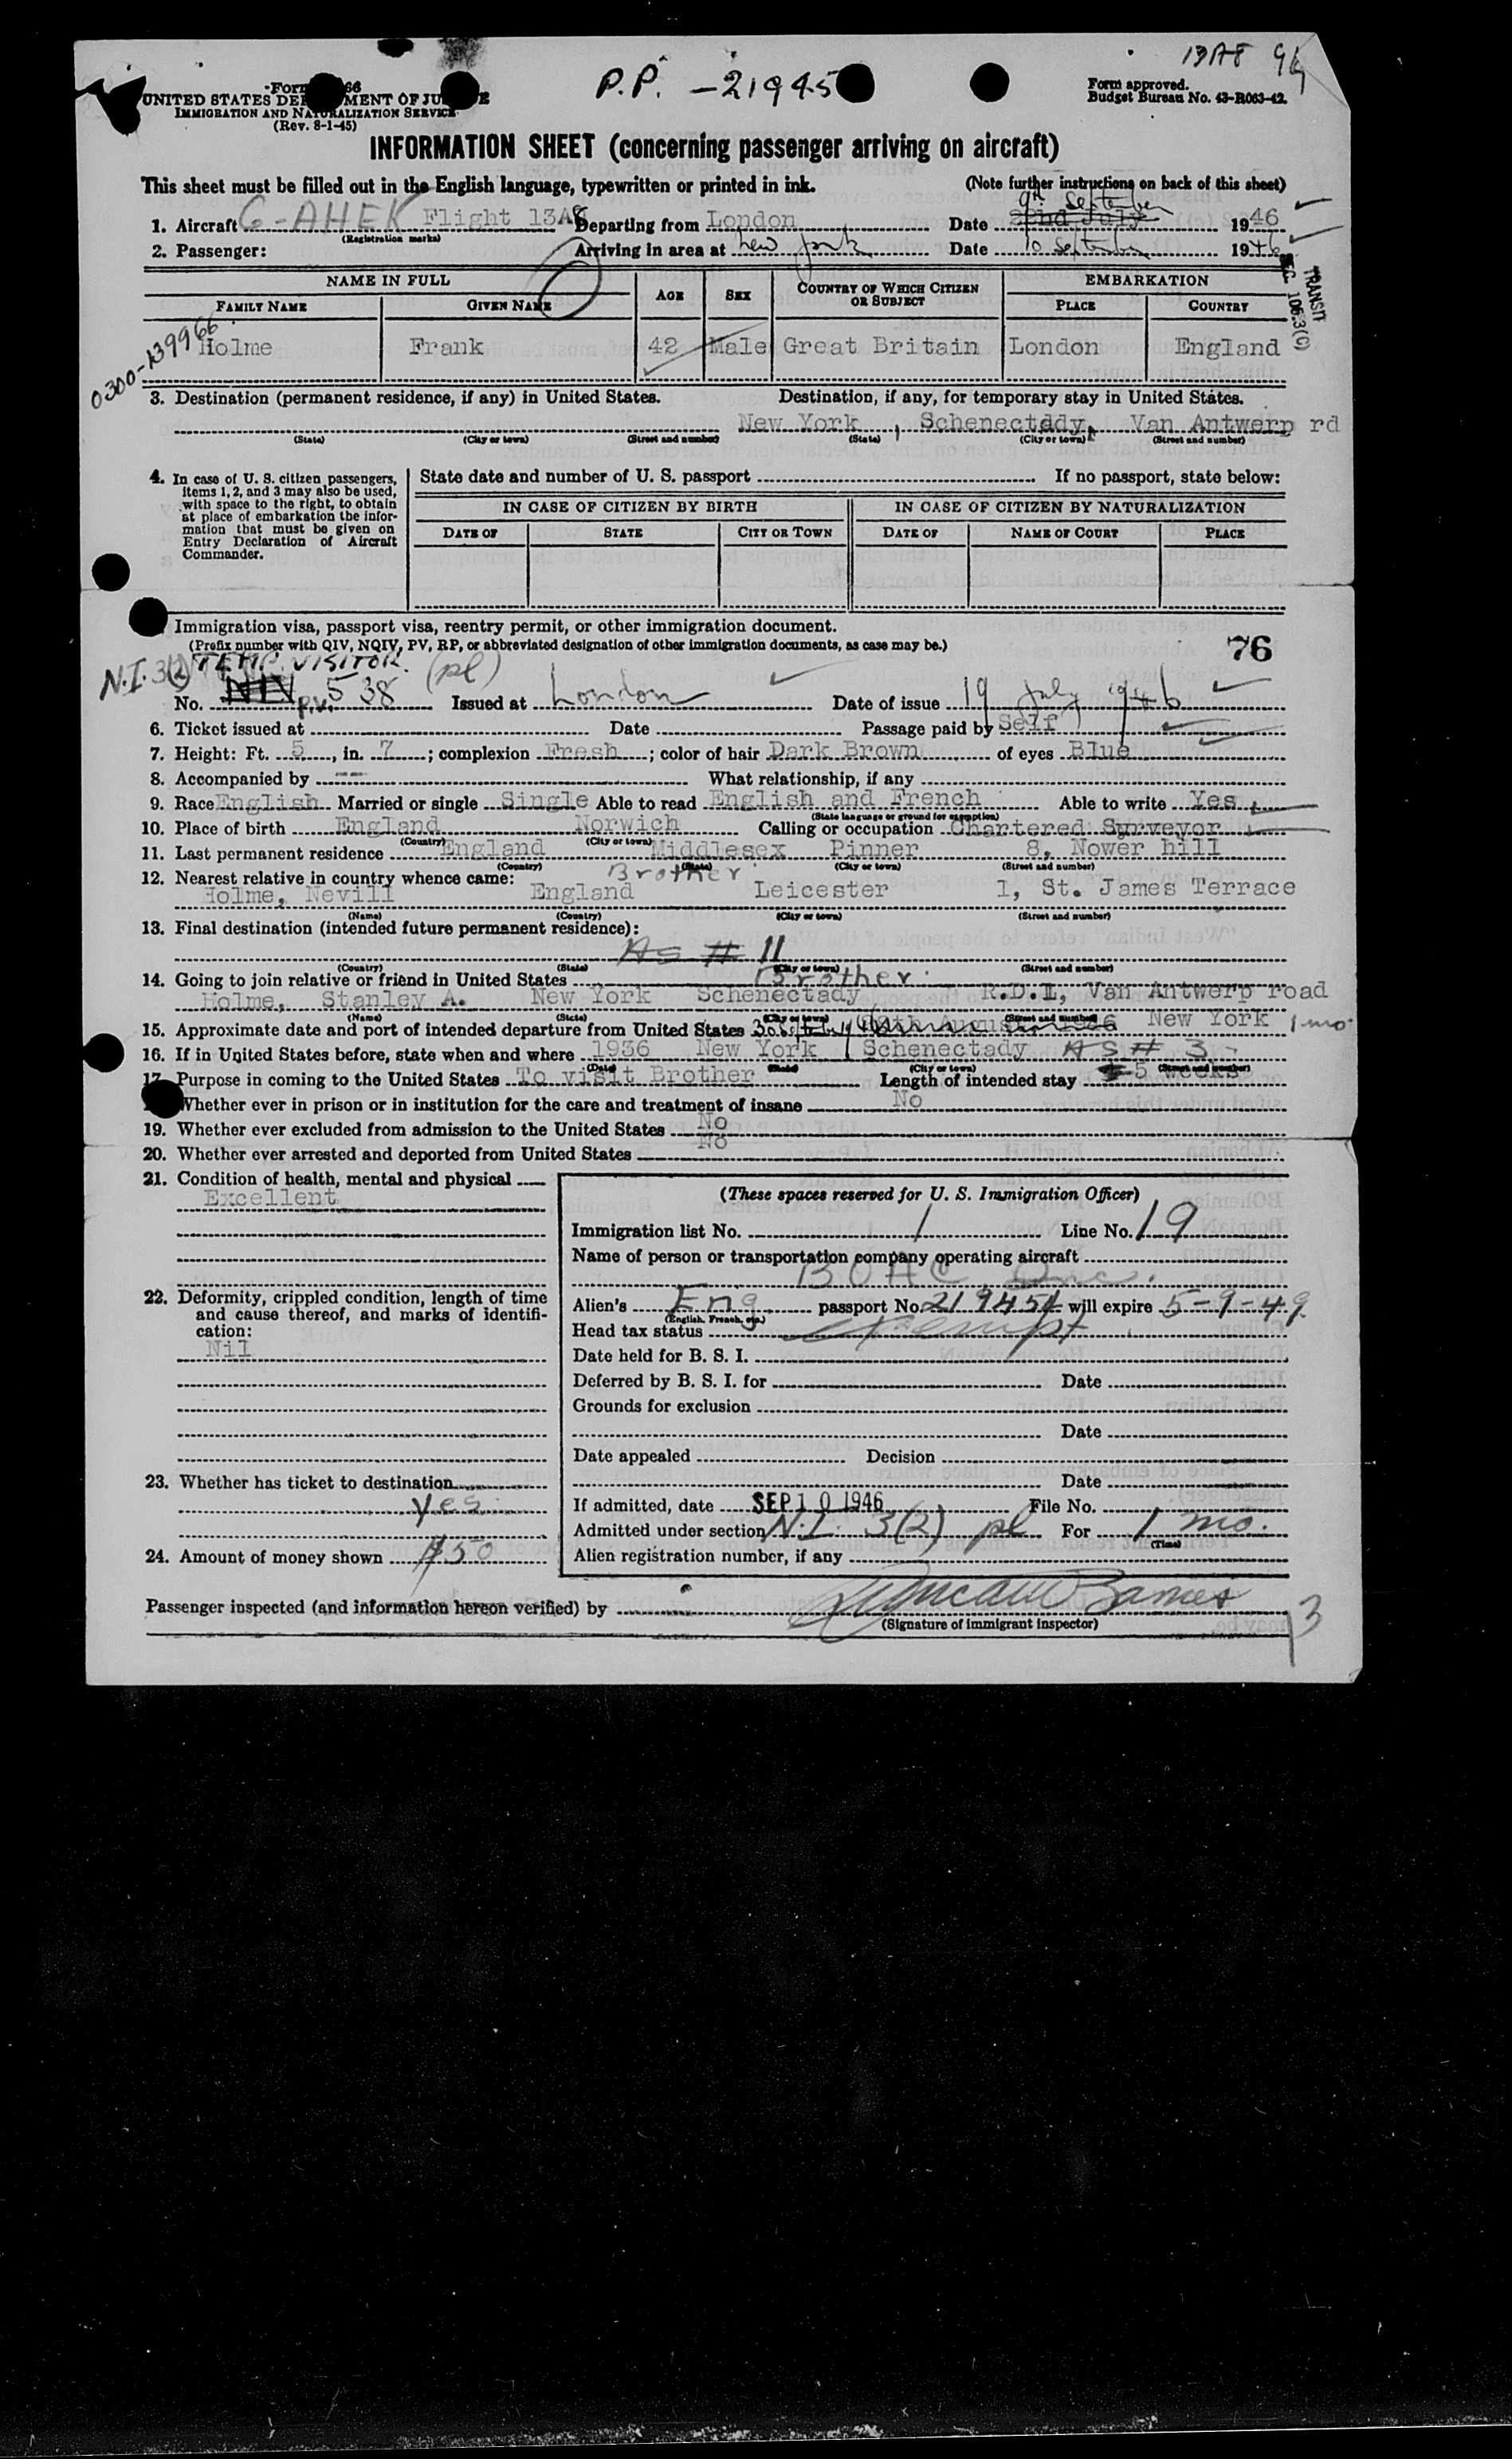 13A8
P.P. -21945
Form approved.
Budget Bureau No. 43-R063-42.
UNITED STATES DEPARTMENT OF JUSTICE
IMMIGRATION AND NATURALIZATION SERVICE
(Rev. 8-1-45)
INFORMATION SHEET (concerning passenger arriving on aircraft)
This sheet must be filled out in the English language, typewritten or printed in ink. (Note further instructions on back of this sheet)
9th September
1. Aircraft G-AHEK Flight 13A8 Departing from London Date 22nd July 1946
(Registration marks)
2. Passenger: Arriving in area at New York Date 10 September 1946
TRANSIT
SEC. 106.3(c)
NAME IN FULL AGE SEX COUNTRY OF WHICH CITIZEN OR SUBJECT EMBARKATION
FAMILY NAME GIVEN NAME PLACE COUNTRY
0300-139966
Holme Frank 42 Male Great Britain London England
3. Destination (permanent residence, if any) in United States. Destination, if any, for temporary stay in United States.
New York, Schenectady, Van Antwerp rd
(State) (City or town) (Street and number) (State) (City or town) (Street and number)
4. In case of U. S. citizen passengers, items 1, 2, and 3 may also be used, with space to the right, to obtain at place of embarkation the information that must be given on Entry Declaration of Aircraft Commander.
State date and number of U. S. passport If no passport, state below:
IN CASE OF CITIZEN BY BIRTH IN CASE OF CITIZEN BY NATURALIZATION
DATE OF STATE CITY OR TOWN DATE OF NAME OF COURT PLACE
Immigration visa, passport visa, reentry permit, or other immigration document.
(Prefix number with QIV, NQIV, PV, RP, or abbreviated designation of other immigration documents, as case may be.)
76
N.I. 3(2) TEMP. VISITOR. (pl)
No. NIV P.V. 538 Issued at London Date of issue 19 July 1946
6. Ticket issued at Date Passage paid by Self
7. Height: Ft. 5, in. 7; complexion Fresh; color of hair Dark Brown of eyes Blue
8. Accompanied by -- What relationship, if any
9. Race English Married or single Single Able to read English and French Able to write Yes
(State language or ground for exemption)
10. Place of birth England Norwich Calling or occupation Chartered Surveyor
(Country) (City or town)
11. Last permanent residence England Middlesex Pinner 8, Nower hill
(Country) (State) (City or town) (Street and number)
12. Nearest relative in country whence came: Brother
Holme, Nevill England Leicester 1, St. James Terrace
(Name) (Country) (City or town) (Street and number)
13. Final destination (intended future permanent residence):
As # 11
(Country) (State) (City or town) (Street and number)
14. Going to join relative or friend in United States Brother.
Holme, Stanley A. New York Schenectady R.D.1, Van Antwerp road
(Name) (State) (City or town) (Street and number)
15. Approximate date and port of intended departure from United States New York 1 mo.
16. If in United States before, state when and where 1936 New York Schenectady AS # 3
(Date) (State) (City or town) (Street and number)
17. Purpose in coming to the United States To visit Brother Length of intended stay 5 weeks
Whether ever in prison or in institution for the care and treatment of insane No
19. Whether ever excluded from admission to the United States No
20. Whether ever arrested and deported from United States No
21. Condition of health, mental and physical
Excellent
22. Deformity, crippled condition, length of time and cause thereof, and marks of identification:
Nil
23. Whether has ticket to destination
Yes
24. Amount of money shown $50
(These spaces reserved for U. S. Immigration Officer)
Immigration list No. 1 Line No. 19
Name of person or transportation company operating aircraft
BOAC Inc.
Alien's Eng. passport No. 219454 will expire 5-9-49
(English, French, etc.)
Head tax status exempt
Date held for B. S. I.
Deferred by B. S. I. for Date
Grounds for exclusion
Date
Date appealed Decision
Date
If admitted, date SEP 10 1946 File No.
Admitted under section N.I. 3(2) pl For 1 mo.
(Time)
Alien registration number, if any
Passenger inspected (and information hereon verified) by
(Signature of immigrant inspector)
3